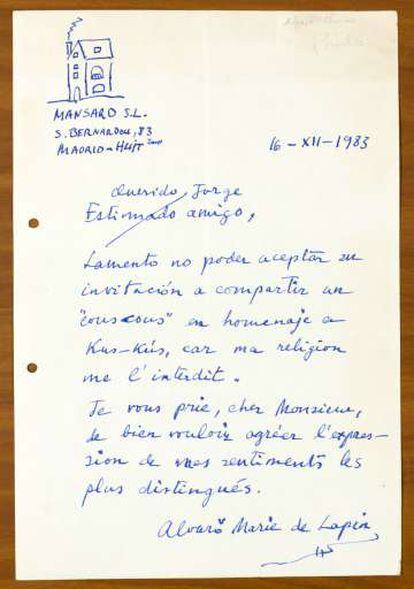 MANSARD S.L.
S. BERNARDOU, 83
MADRID-HUIT
16-XII-1983
Querido Jorge
Estimado amigo,
Lamento no poder aceptar su
invitación a compartir un
"cous-cous" en homenaje a
Kus-Kús, car ma religion
me l'interdit.
Je vous prie, cher Monsieur,
de bien vouloir agréer l'expres-
sion de mes sentiments les
plus distingués.
Alvaro Marie de Lapin